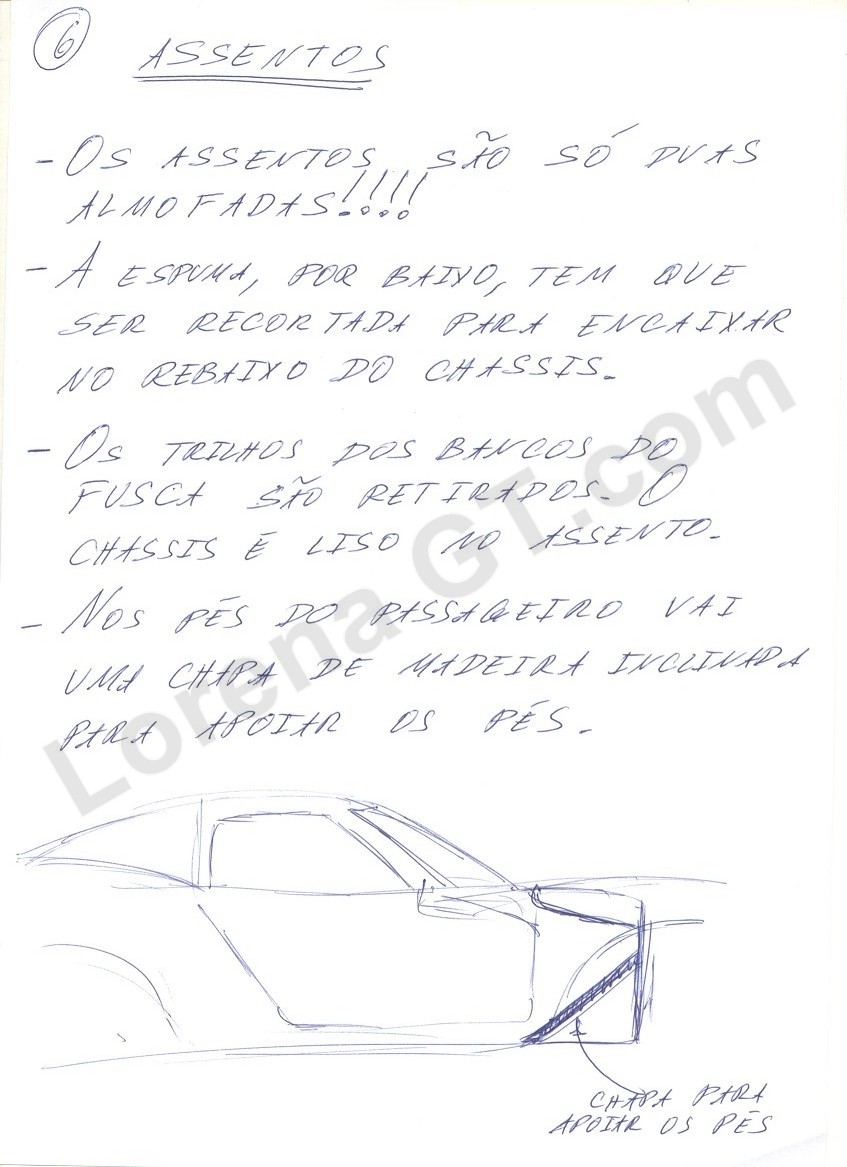 6
ASSENTOS
- OS ASSENTOS SÃO SÓ DUAS
ALMOFADAS!!!!
- A ESPUMA, POR BAIXO, TEM QUE
SER RECORTADA PARA ENCAIXAR
NO REBAIXO DO CHASSIS.
- OS TRILHOS DOS BANCOS DO
FUSCA SÃO RETIRADOS. O
CHASSIS É LISO NO ASSENTO.
- NOS PÉS DO PASSAGEIRO VAI
UMA CHAPA DE MADEIRA INCLINADA
PARA APOIAR OS PÉS.
CHAPA PARA
APOIAR OS PÉS
Lorena GT.com